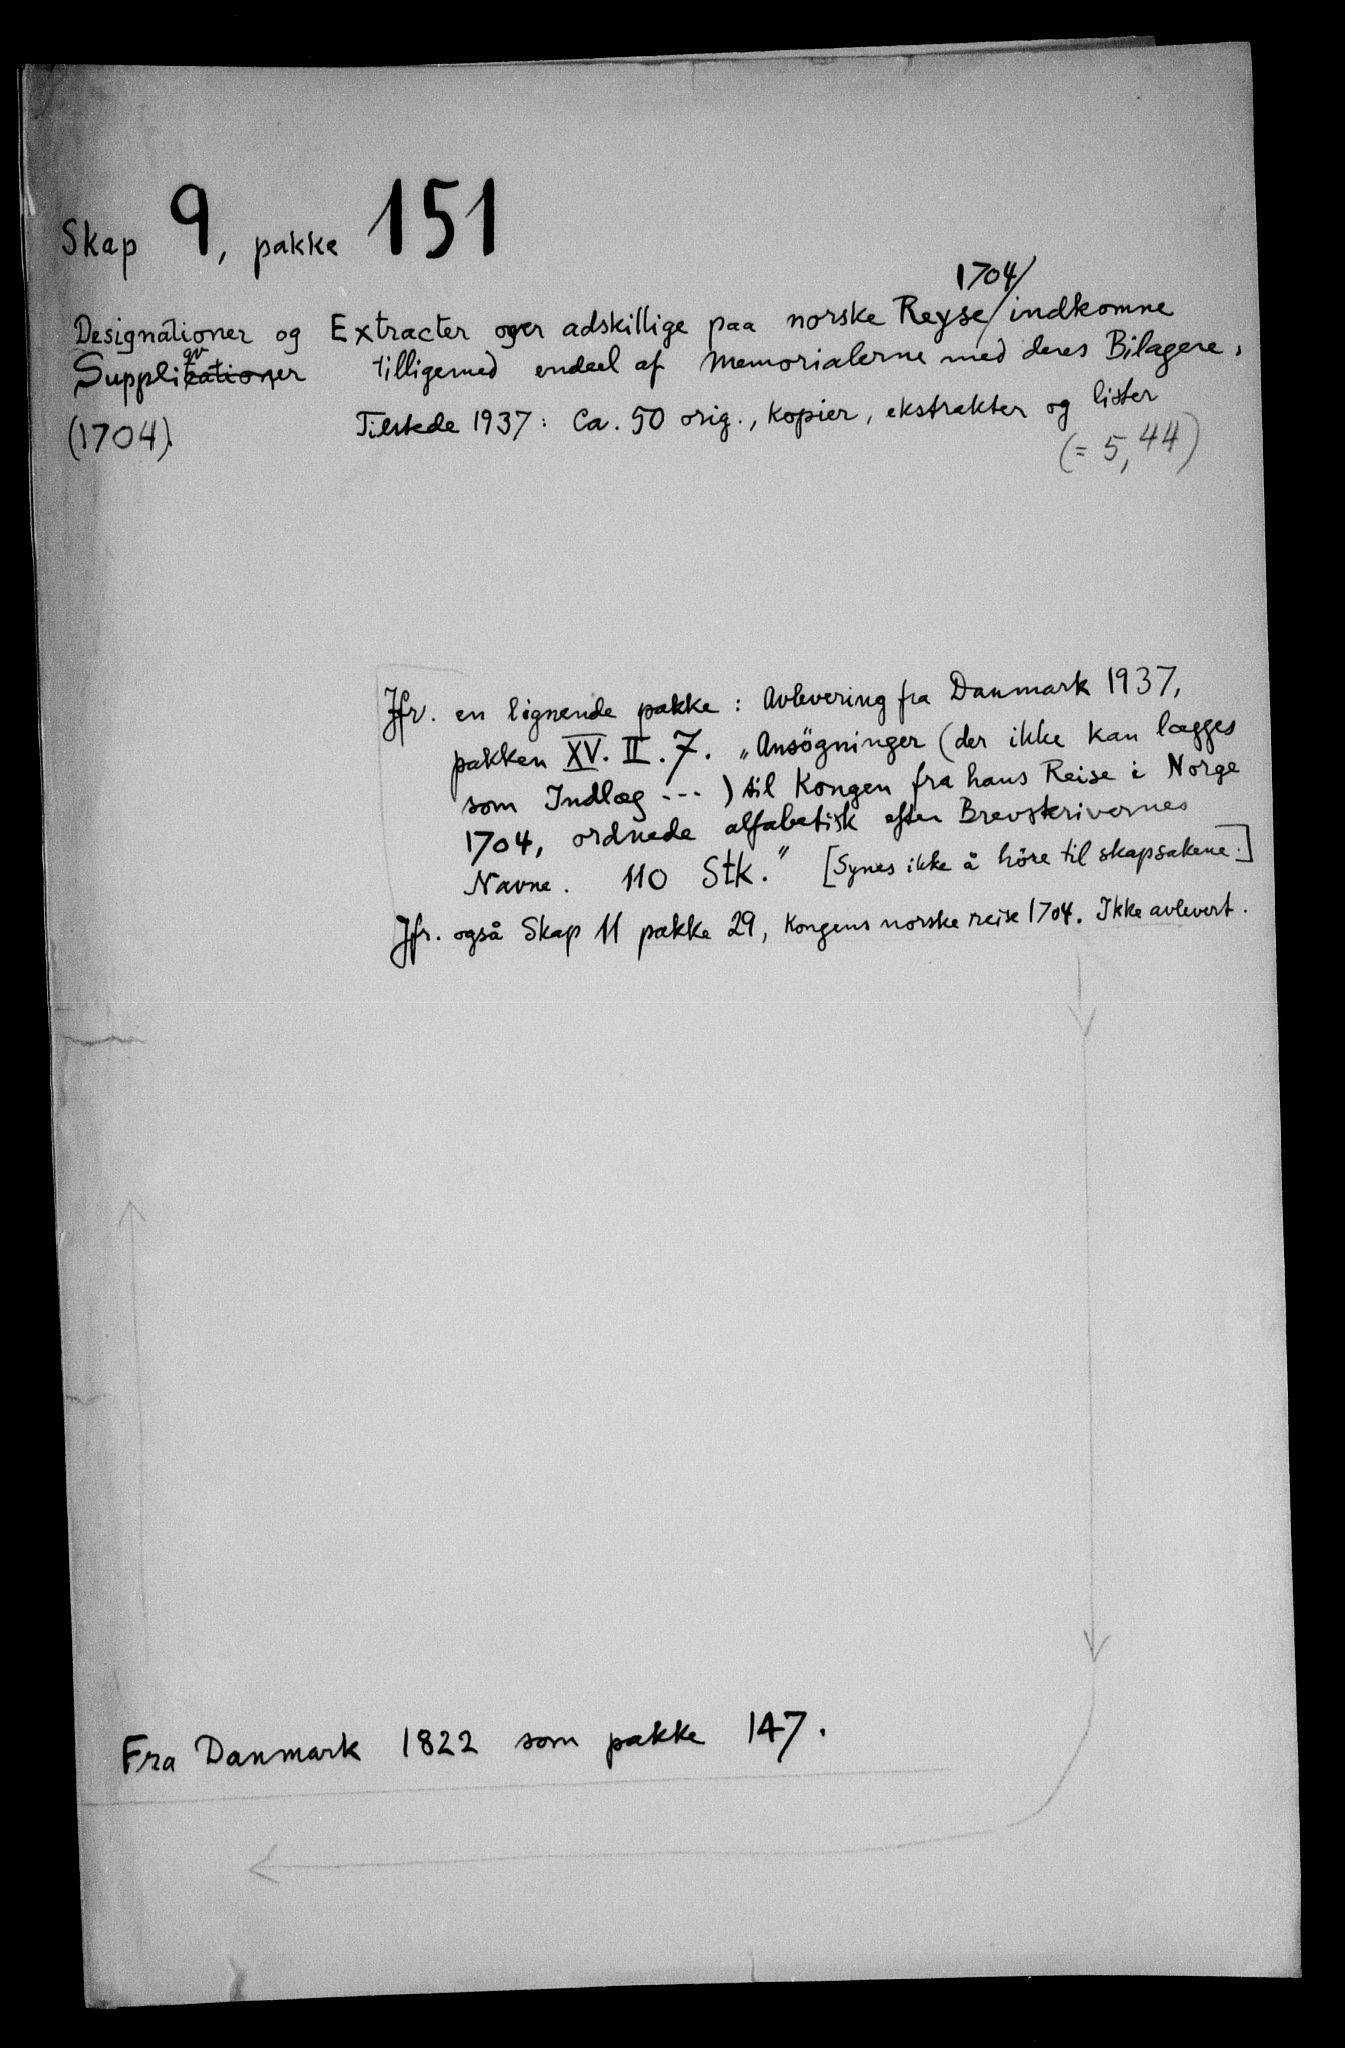 Skap 9, pakke 151
1704/
Designationer og Extracter over adskillige paa norske Reyse/indkomne
Suppliqver tilligemed endeel af Memorialerne med deres Bilagere,
(1704). Tilstede 1937: Ca. 50 orig., kopier, ekstrakter og lister
(= 5,44)
Jfr. en lignende pakke: Avlevering fra Danmark 1937,
pakken XV. II. 7. „Ansögninger (der ikke kan lægges
som Indlæg ---) til Kongen fra hans Reise i Norge
1704, ordnede alfabetisk efter Brevskrivernes
Navne. 110 Stk.” [Synes ikke å höre til skapsakene.]
Jfr. også Skap 11 pakke 29, Kongens norske reise 1704. Ikke avlevert.
Fra Danmark 1822 som pakke 147.